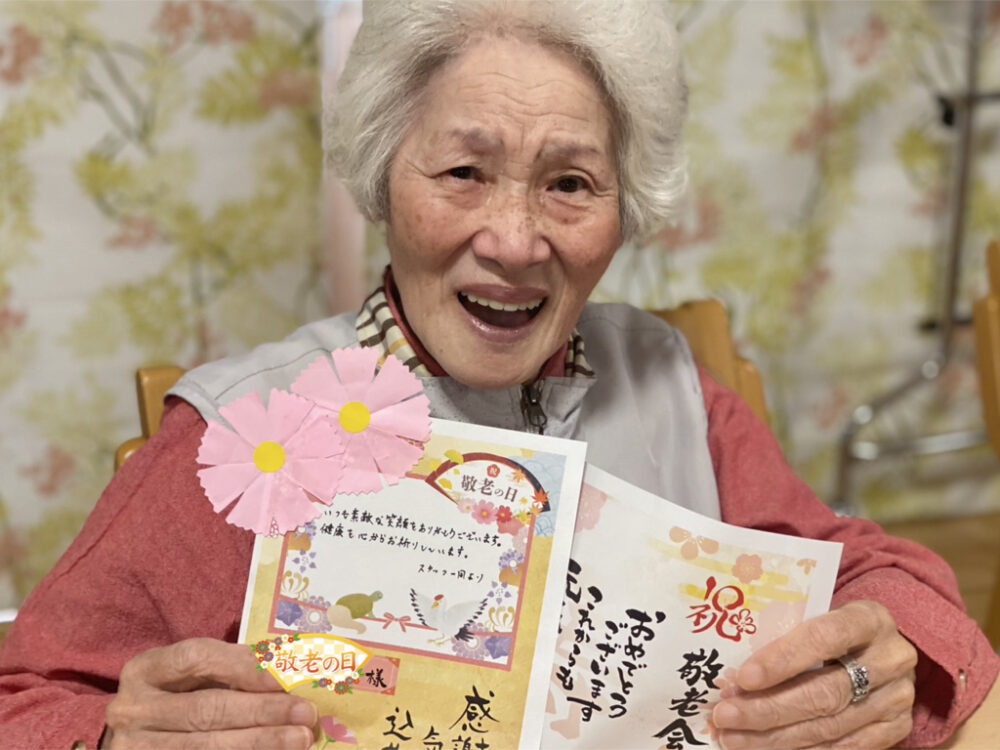 祝
敬老の日
いつも素敵な笑顔をありがとうございます。
健康を心からお祈りしています。
スタッフ一同より
敬老の日
様
感謝
込
気
祝
敬老会
おめでとう
ございます
これからも